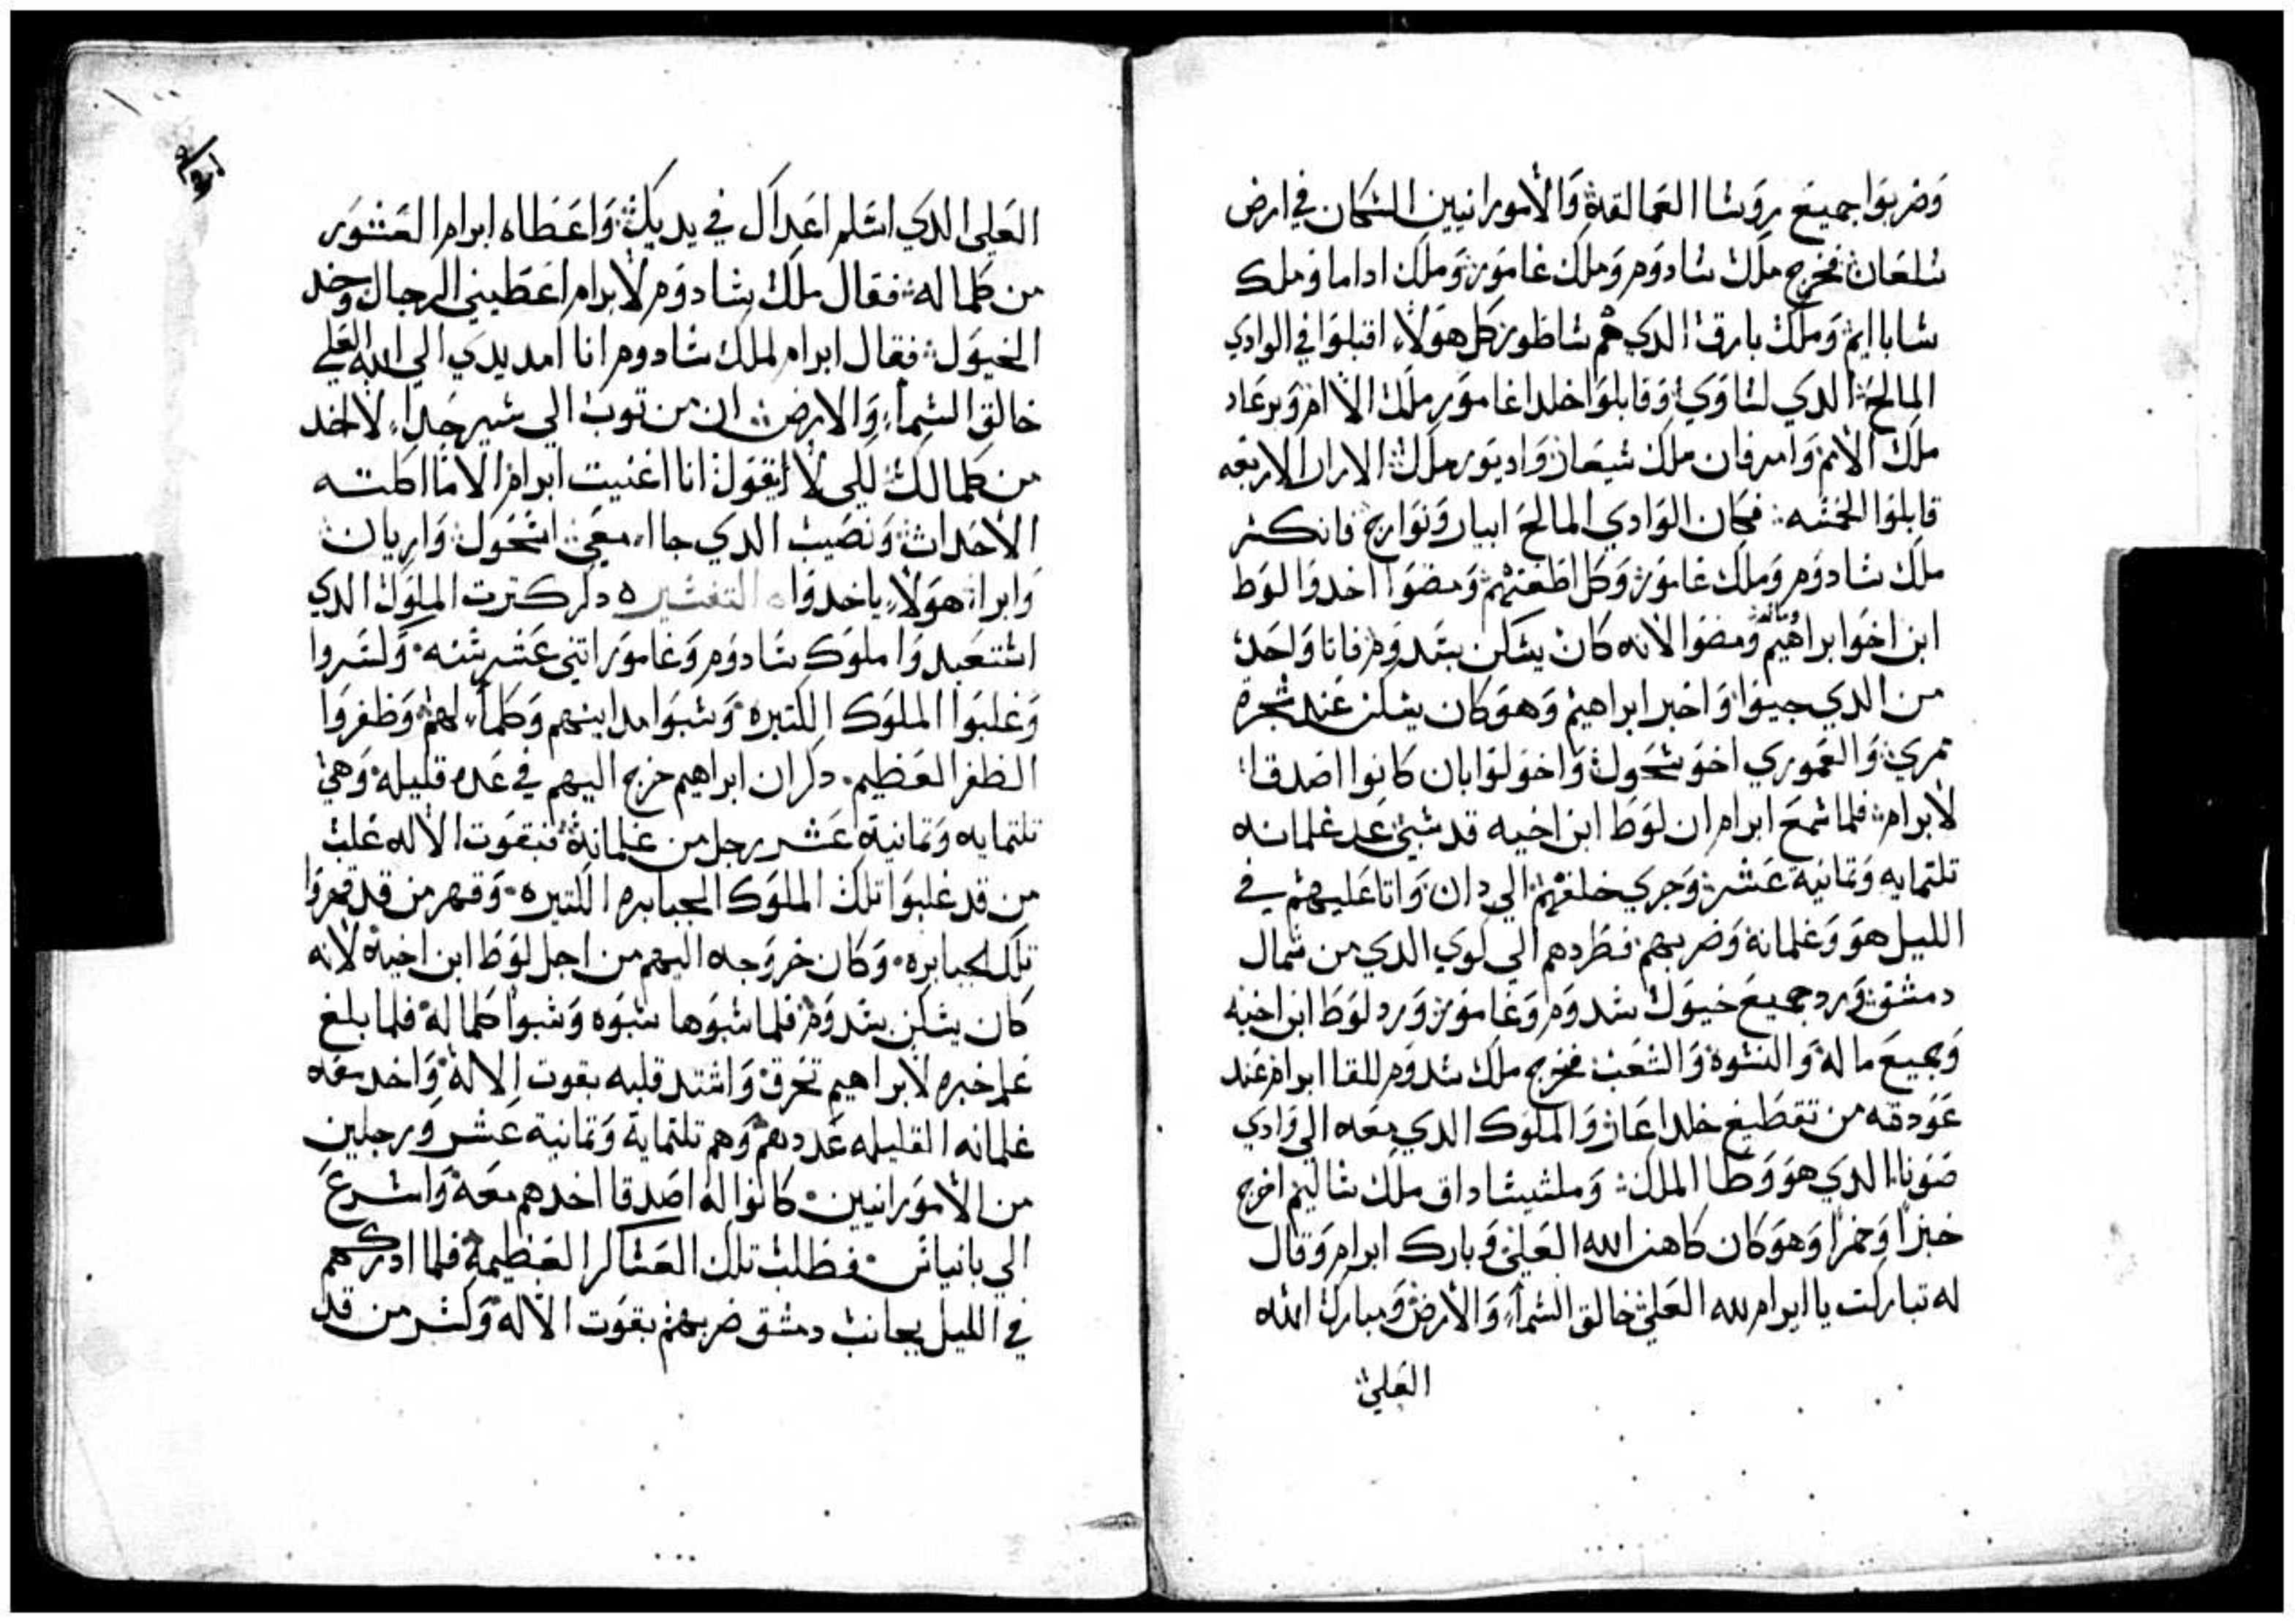 وضربوا جميع روسا العمالقة والامورانيين السكان في ارض
سلعان فخرج ملك سادوم وملك غامور وملك اداما وملك
ساباايم وملك بارق الدي هم ساطور كل هولاء اقبلوا في الوادي
المالح الدي لساوي وقابلوا خلداغامور ملك الاام وبرعاد
ملك الامم وامرفان ملك شيعان واديور ملك الاران الاربعه
قابلوا الخمسه فكان الوادي المالح ابيار ونوارج فانكسر
ملك سادوم وملك غامور وكل اطعمتهم ومضوا اخدوا لوط
ابن اخوا براهيم وماله ومضوا لانه كان يسكن بسدوم فاتا واحد
من الدي جيوا واخبر ابراهيم وهو كان يسكن عند شجرة
ممري والعموري اخو شحول واخو لوابان كانوا اصدقا
لابرام فلما سمع ابرام ان لوط ابن اخيه قد سبي عد غلمانه
تلتمايه وتمانية عشر وجري خلفهم الي دان واتا عليهم في
الليل هو وغلمانه وضربهم فطردهم الي لوي الدي من شمال
دمشق ورد جميع خيول سدوم وغامور ورد لوط ابن اخيه
وجميع ماله والنسوة والشعب فخرج ملك سدوم للقا ابرام عند
عودته من تقطيع خلداعان والملوك الدي معه الي وادي
صونا الدي هو وطا الملك وملشيساداق ملك ساليم اخرج
خبزا وخمرا وهو كان كاهن الله العلي وبارك ابرام وقال
له تباركت يا ابرام لله العلي خالق السماء والارض ومبارك الله
العلي
العلي الدي اسلم اعداك في يديك واعطاه ابرام العشور
من كلما له فقال ملك سادوم لابرام اعطيني الرجال وخد
الخيول فقال ابرام لملك سادوم انا امد يدي الي الله العلي
خالق السماء والارض ان من توب الي سير حداء لا اخد
من كلما لك لكي لا تقول انا اغنيت ابرام الا ما اكلته
الاحدات ونصيب الدي جااء معي اشحول واريان
وابراء هولاء ياخدوا التفسير دكر كترت الملوك الدي
استعبدوا ملوك سادوم وغامور اتني عشر سنه وكسروا
وغلبوا الملوك الكتيره وسبوا مداينهم وكلماء لهم وظفروا
الظفر العظيم دكر ان ابراهيم خرج اليهم في عده قليله وهي
تلتمايه وتمانية عشر رجل من غلمانه فبقوت الاله غلب
من قد غلبوا تلك الملوك الجبابره الكتيره وقهر من قد قهروا
تلك الجبابره وكان خروجه اليهم من اجل لوط ابن اخيه لانه
كان يسكن بسدوم فلما سبوها سبوه وسبوا كلما له فلما بلغ
علم خبره لابراهيم تحرق واشتد قلبه بقوت الاله واخد معه
غلمانه القليله عددهم وهم تلتماية وتمانية عشر ورجلين
من الامورانيين كانوا له اصدقا اخدهم معه واسرع
الي بانياس فطلب تلك العساكر العظيمة فلما ادركهم
في الليل بجانب دمشق ضربهم بقوت الاله وكسر من قد